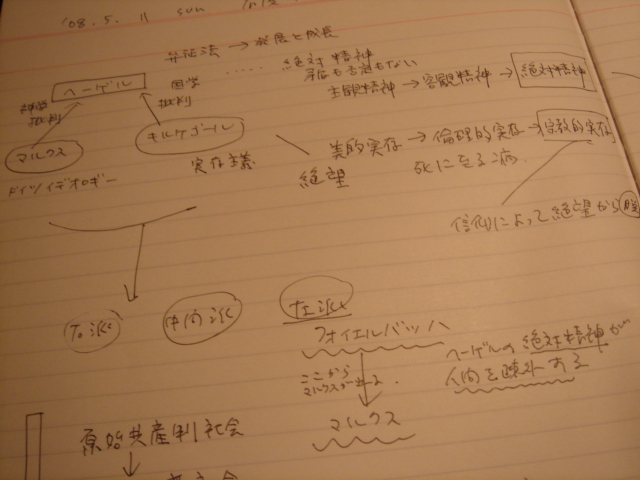 '08. 5. 11 sun
弁証法 → 発展と成長
..... 絶対精神
矛盾も
もない
ヘーゲル
国学
批判
神学
批判
主観精神 → 客観精神 → 絶対精神
マルクス
キルケゴール
実存主義
美的実存 → 倫理的実存 → 宗教的実存
絶望
死に至る病
ドイツイデオロギー
信仰によって絶望から
右派
中間派
左派
フォイエルバッハ
ヘーゲルの絶対精神が
人間を疎外する
ここから
マルクス
マルクス
原始共産制社会